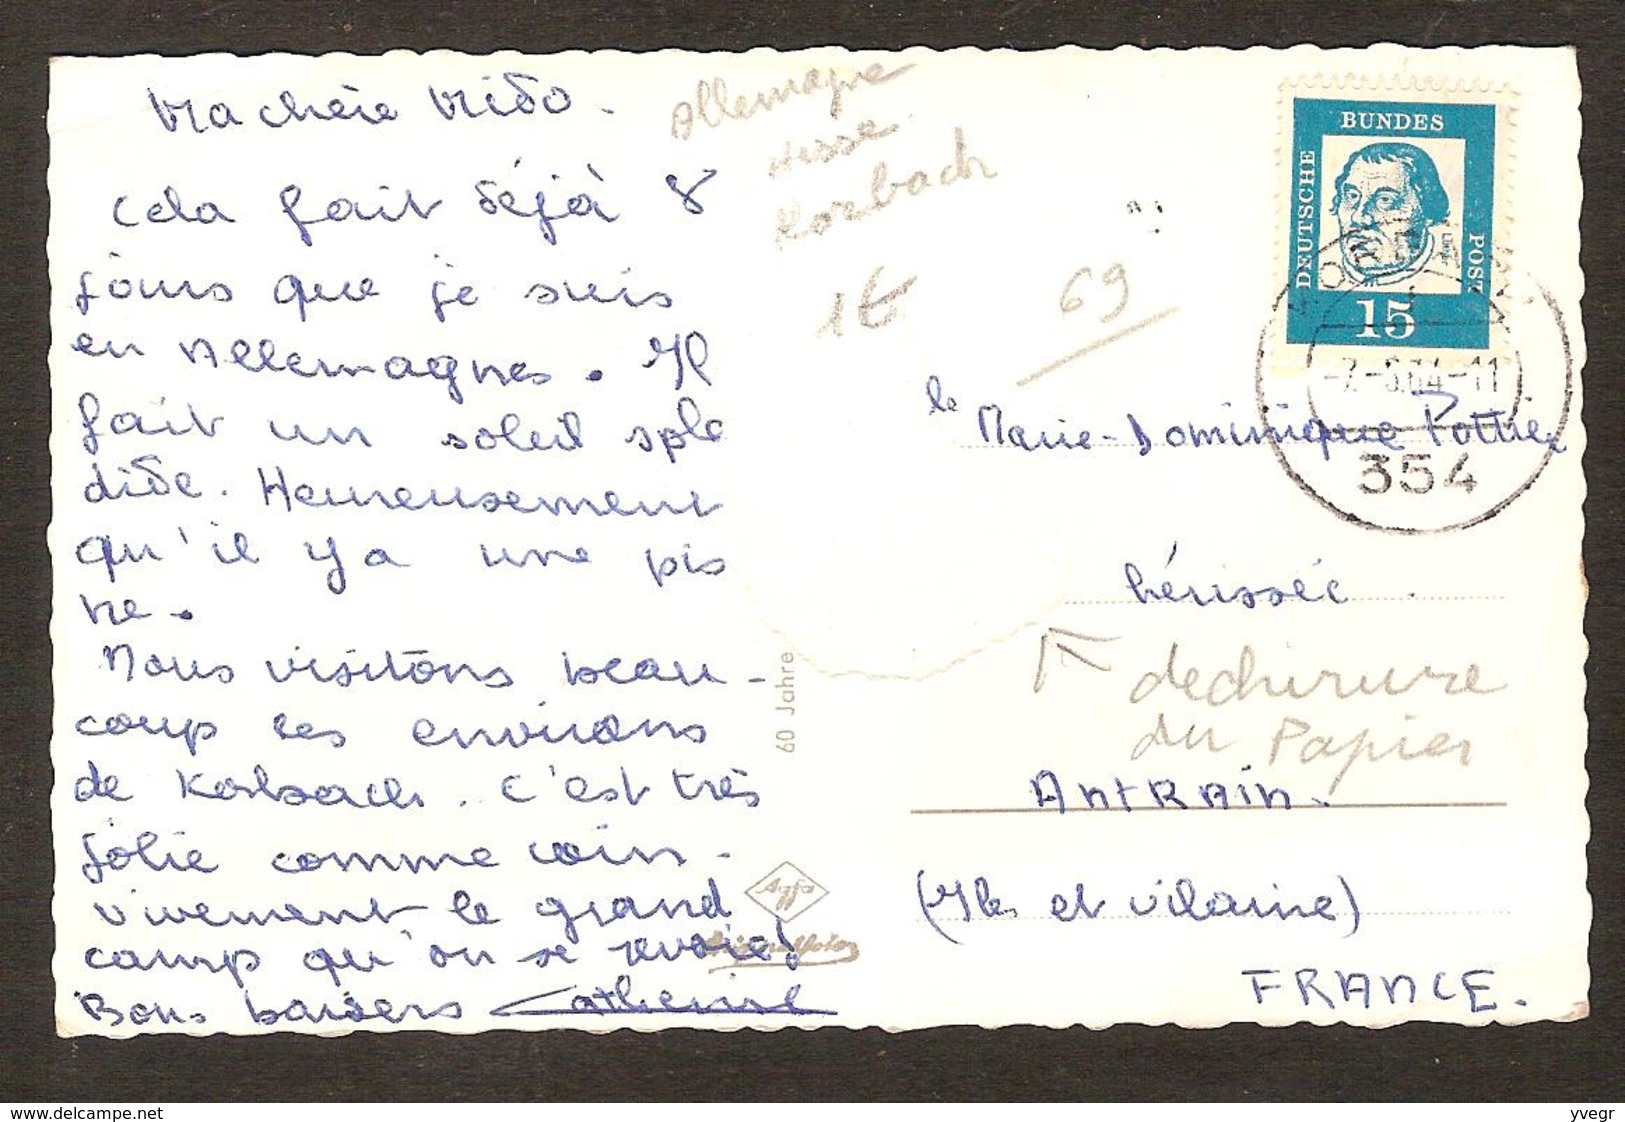 Ma chère Mido.
Cela fait déjà 8
jours que je suis
en Allemagnes. Il
fait un soleil sple
dide. Heureusement
qu'il y a une pis
ne.
Nous visitons beau-
coup les environs
de Korbach. C'est très
jolie comme coin.
vivement le grand
camp qu'on se revoies
Bons baisers Catherine
Allemagne
Hesse
Korbach
1€
69
DEUTSCHE
BUNDES
POST
15
354
Marie-Dominique Pottier
hérissée
dechirure
du Papier
ANTRAIN.
(Ille et vilaine)
FRANCE.
60 Jahre
Agfa
delcampe.net
yvegr